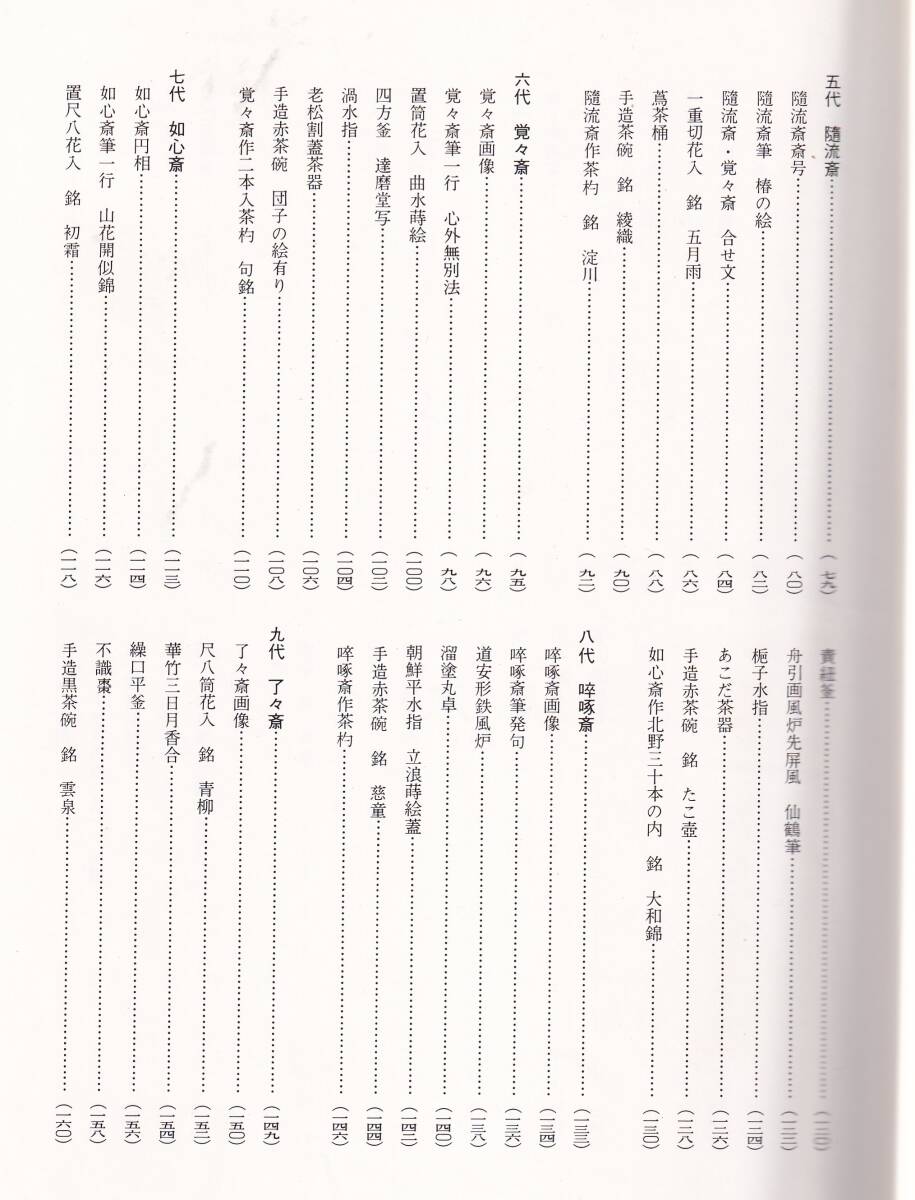 五代　隨流斎……(七九)
隨流斎斎号……(八〇)
隨流斎筆　椿の絵……(八二)
隨流斎・覚々斎　合せ文……(八四)
一重切花入　銘　五月雨……(八六)
蔦茶桶……(八八)
手造茶碗　銘　綾織……(九〇)
隨流斎作茶杓　銘　淀川……(九二)
六代　覚々斎……(九五)
覚々斎画像……(九六)
覚々斎筆一行　心外無別法……(九八)
置筒花入　曲水蒔絵……(一〇〇)
四方釜　達磨堂写……(一〇二)
渦水指……(一〇四)
老松割蓋茶器……(一〇六)
手造赤茶碗　団子の絵有り……(一〇八)
覚々斎作二本入茶杓　句銘……(一一〇)
七代　如心斎……(一一三)
如心斎円相……(一一四)
如心斎筆一行　山花開似錦……(一一六)
置尺八花入　銘　初霜……(一一八)
責紐釜……(一二〇)
舟引画風炉先屏風　仙鶴筆……(一二二)
梔子水指……(一二四)
あこだ茶器……(一二六)
手造赤茶碗　銘　たこ壺……(一二八)
如心斎作北野三十本の内　銘　大和錦……(一三〇)
八代　啐啄斎……(一三三)
啐啄斎画像……(一三四)
啐啄斎筆発句……(一三六)
道安形鉄風炉……(一三八)
溜塗丸卓……(一四〇)
朝鮮平水指　立浪蒔絵蓋……(一四二)
手造赤茶碗　銘　慈童……(一四四)
啐啄斎作茶杓……(一四六)
九代　了々斎……(一四九)
了々斎画像……(一五〇)
尺八筒花入　銘　青柳……(一五二)
華竹三日月香合……(一五四)
繰口平釜……(一五六)
不識棗……(一五八)
手造黒茶碗　銘　雲泉……(一六〇)